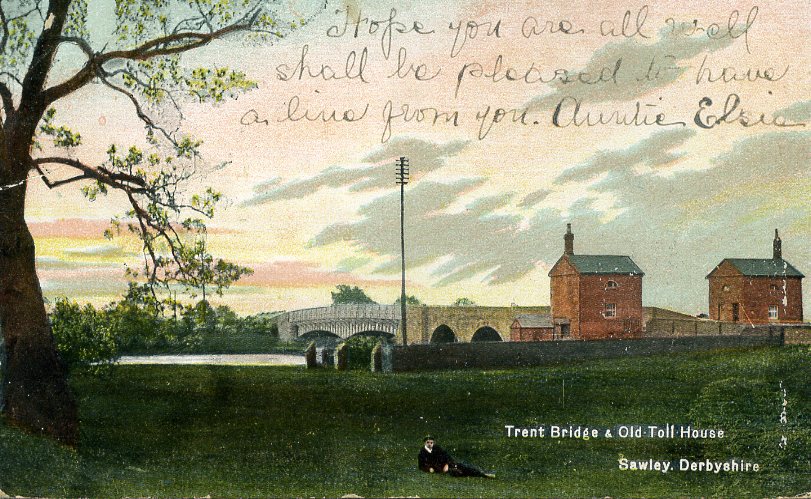 Hope you are all well
shall be pleased to have
a line from you. Auntie Elsie
Trent Bridge & Old Toll House
Sawley. Derbyshire